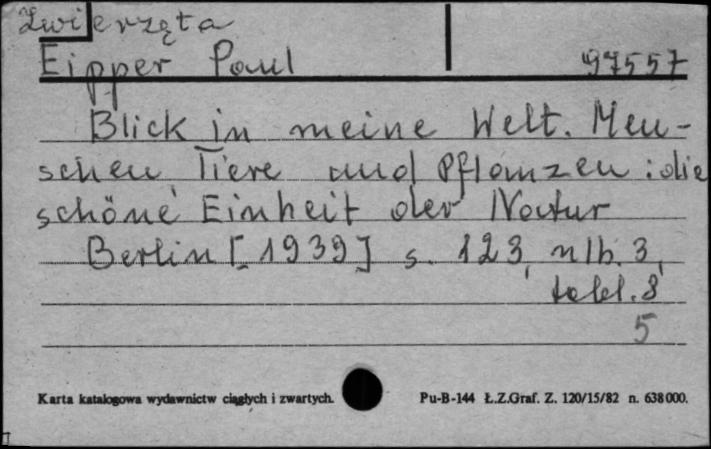 Zwierzęta
Eipper Paul 97557
Blick in meine Welt. Men-
schen, Tiere und Pflanzen: die
schöne Einheit der Natur
Berlin [1939] s. 123, nlb. 3,
tabl. 8
5
Karta katalogowa wydawnictw ciągłych i zwartych. Pu-B-144 Ł.Z.Graf. Z. 120/15/82 n. 638000.